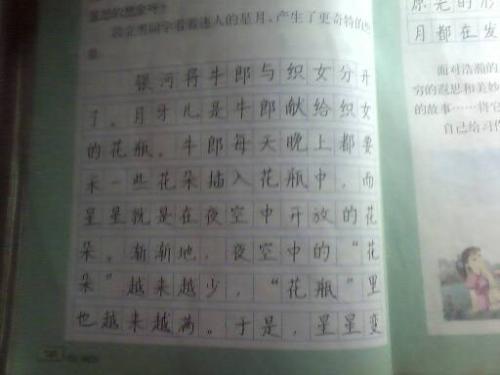 同学看着迷人的星月，产生了更奇特的
银河将牛郎与织女分开
了。月牙儿是牛郎献给织女
的花瓶。牛郎每天晚上都要
采一些花朵插入花瓶中，而
星星就是在夜空中开放的花
朵。渐渐地，夜空中的“花
朵”越来越少，“花瓶”里
也越来越满。于是，星星变
月都在发
面对浩瀚的
穷的遐思和美妙
的故事……将它
自己给习作